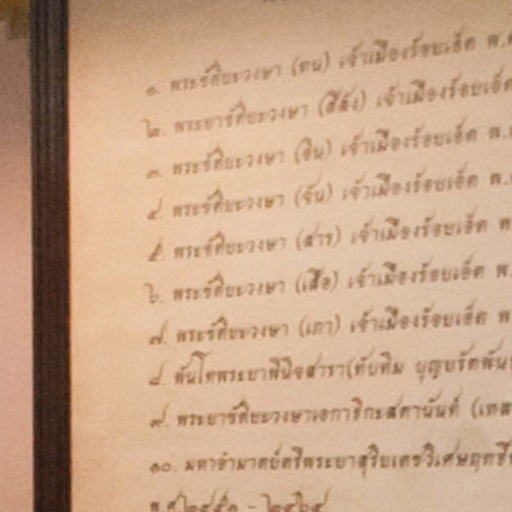 ๑. พระขัติยะวงษา (ทน) เจ้าเมืองร้อยเอ็ด พ.
๒. พระยาขัติยะวงษา (สีลัง) เจ้าเมืองร้อยเอ็ด
๓. พระขัติยะวงษา (อิน) เจ้าเมืองร้อยเอ็ด พ.
๔. พระขัติยะวงษา (จัน) เจ้าเมืองร้อยเอ็ด พ.
๕. พระขัติยะวงษา (สาร) เจ้าเมืองร้อยเอ็ด พ
๖. พระขัติยะวงษา (เสือ) เจ้าเมืองร้อยเอ็ด พ.
๗. พระขัติยะวงษา (เภา) เจ้าเมืองร้อยเอ็ด พ
๘. พันโทพระยาพินิจสารา(ทับทิม บุญยรัตพัน
๙. พระยาขัติยะวงษาเอกาธิกะสตานันท์ (เหล
๑๐. มหาอำมาตย์ตรีพระยาสุริยเดชวิเศษฤทธิ์